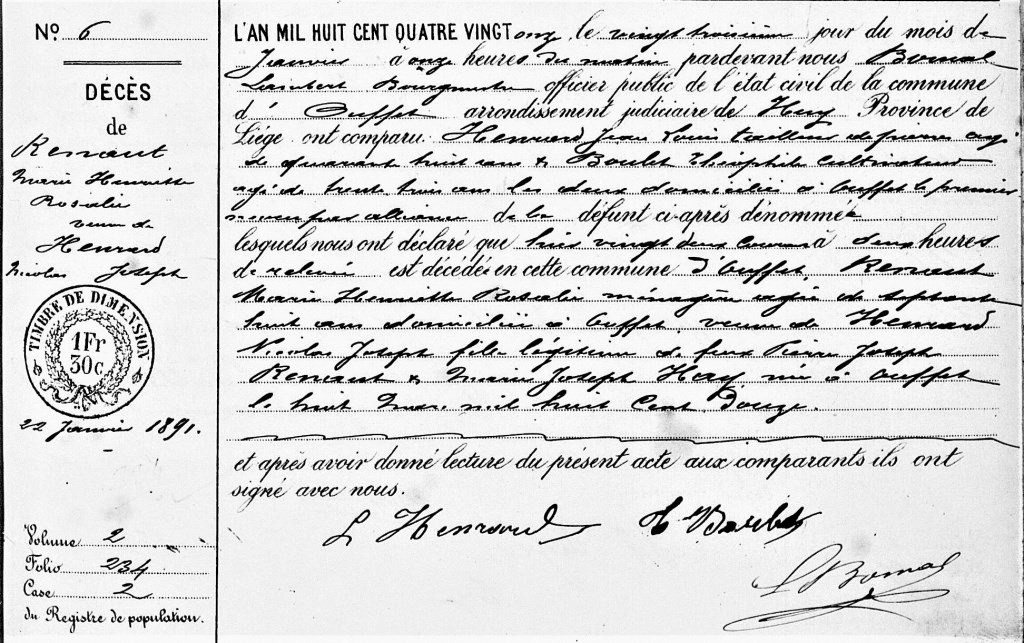 Nº 6
DÉCÈS
de
Renaut
Marie Henriette
Rosalie
veuve de
Henrard
Nicolas Joseph
TIMBRE DE DIMENSION
1Fr
30c
22 Janvier 1891.
Volume 2
Folio 234
Case 2
du Registre de population.
L'AN MIL HUIT CENT QUATRE VINGT onze, le vingt troisième jour du mois de
Janvier à onze heures du matin pardevant nous Bomal
Lambert Bourgmestre officier public de l'état civil de la commune
d' Ouffet arrondissement judiciaire de Huy Province de
Liége ont comparu Henrard Jean Louis tailleur de pierre agé
de quarante huit ans & Boulet Théophile Cultivateur
agé de trente trois ans les deux domiciliés à Ouffet le premier
neveu par alliance de la défunt ci-après dénommée
lesquels nous ont déclaré que hier vingt deux courant à deux heures
de relevée est décédée en cette commune d'Ouffet, Renaut
Marie Henriette Rosalie ménagère agée de septante
huit ans domiciliée à Ouffet, veuve de Henrard
Nicolas Joseph fille légitime de feus Pierre Joseph
Renaut & Marie Joseph Hay née à Ouffet
le huit Mars mil huit Cent douze.
et après avoir donné lecture du présent acte aux comparants ils ont
signé avec nous.
L Henrard T Boulet
L Bomal